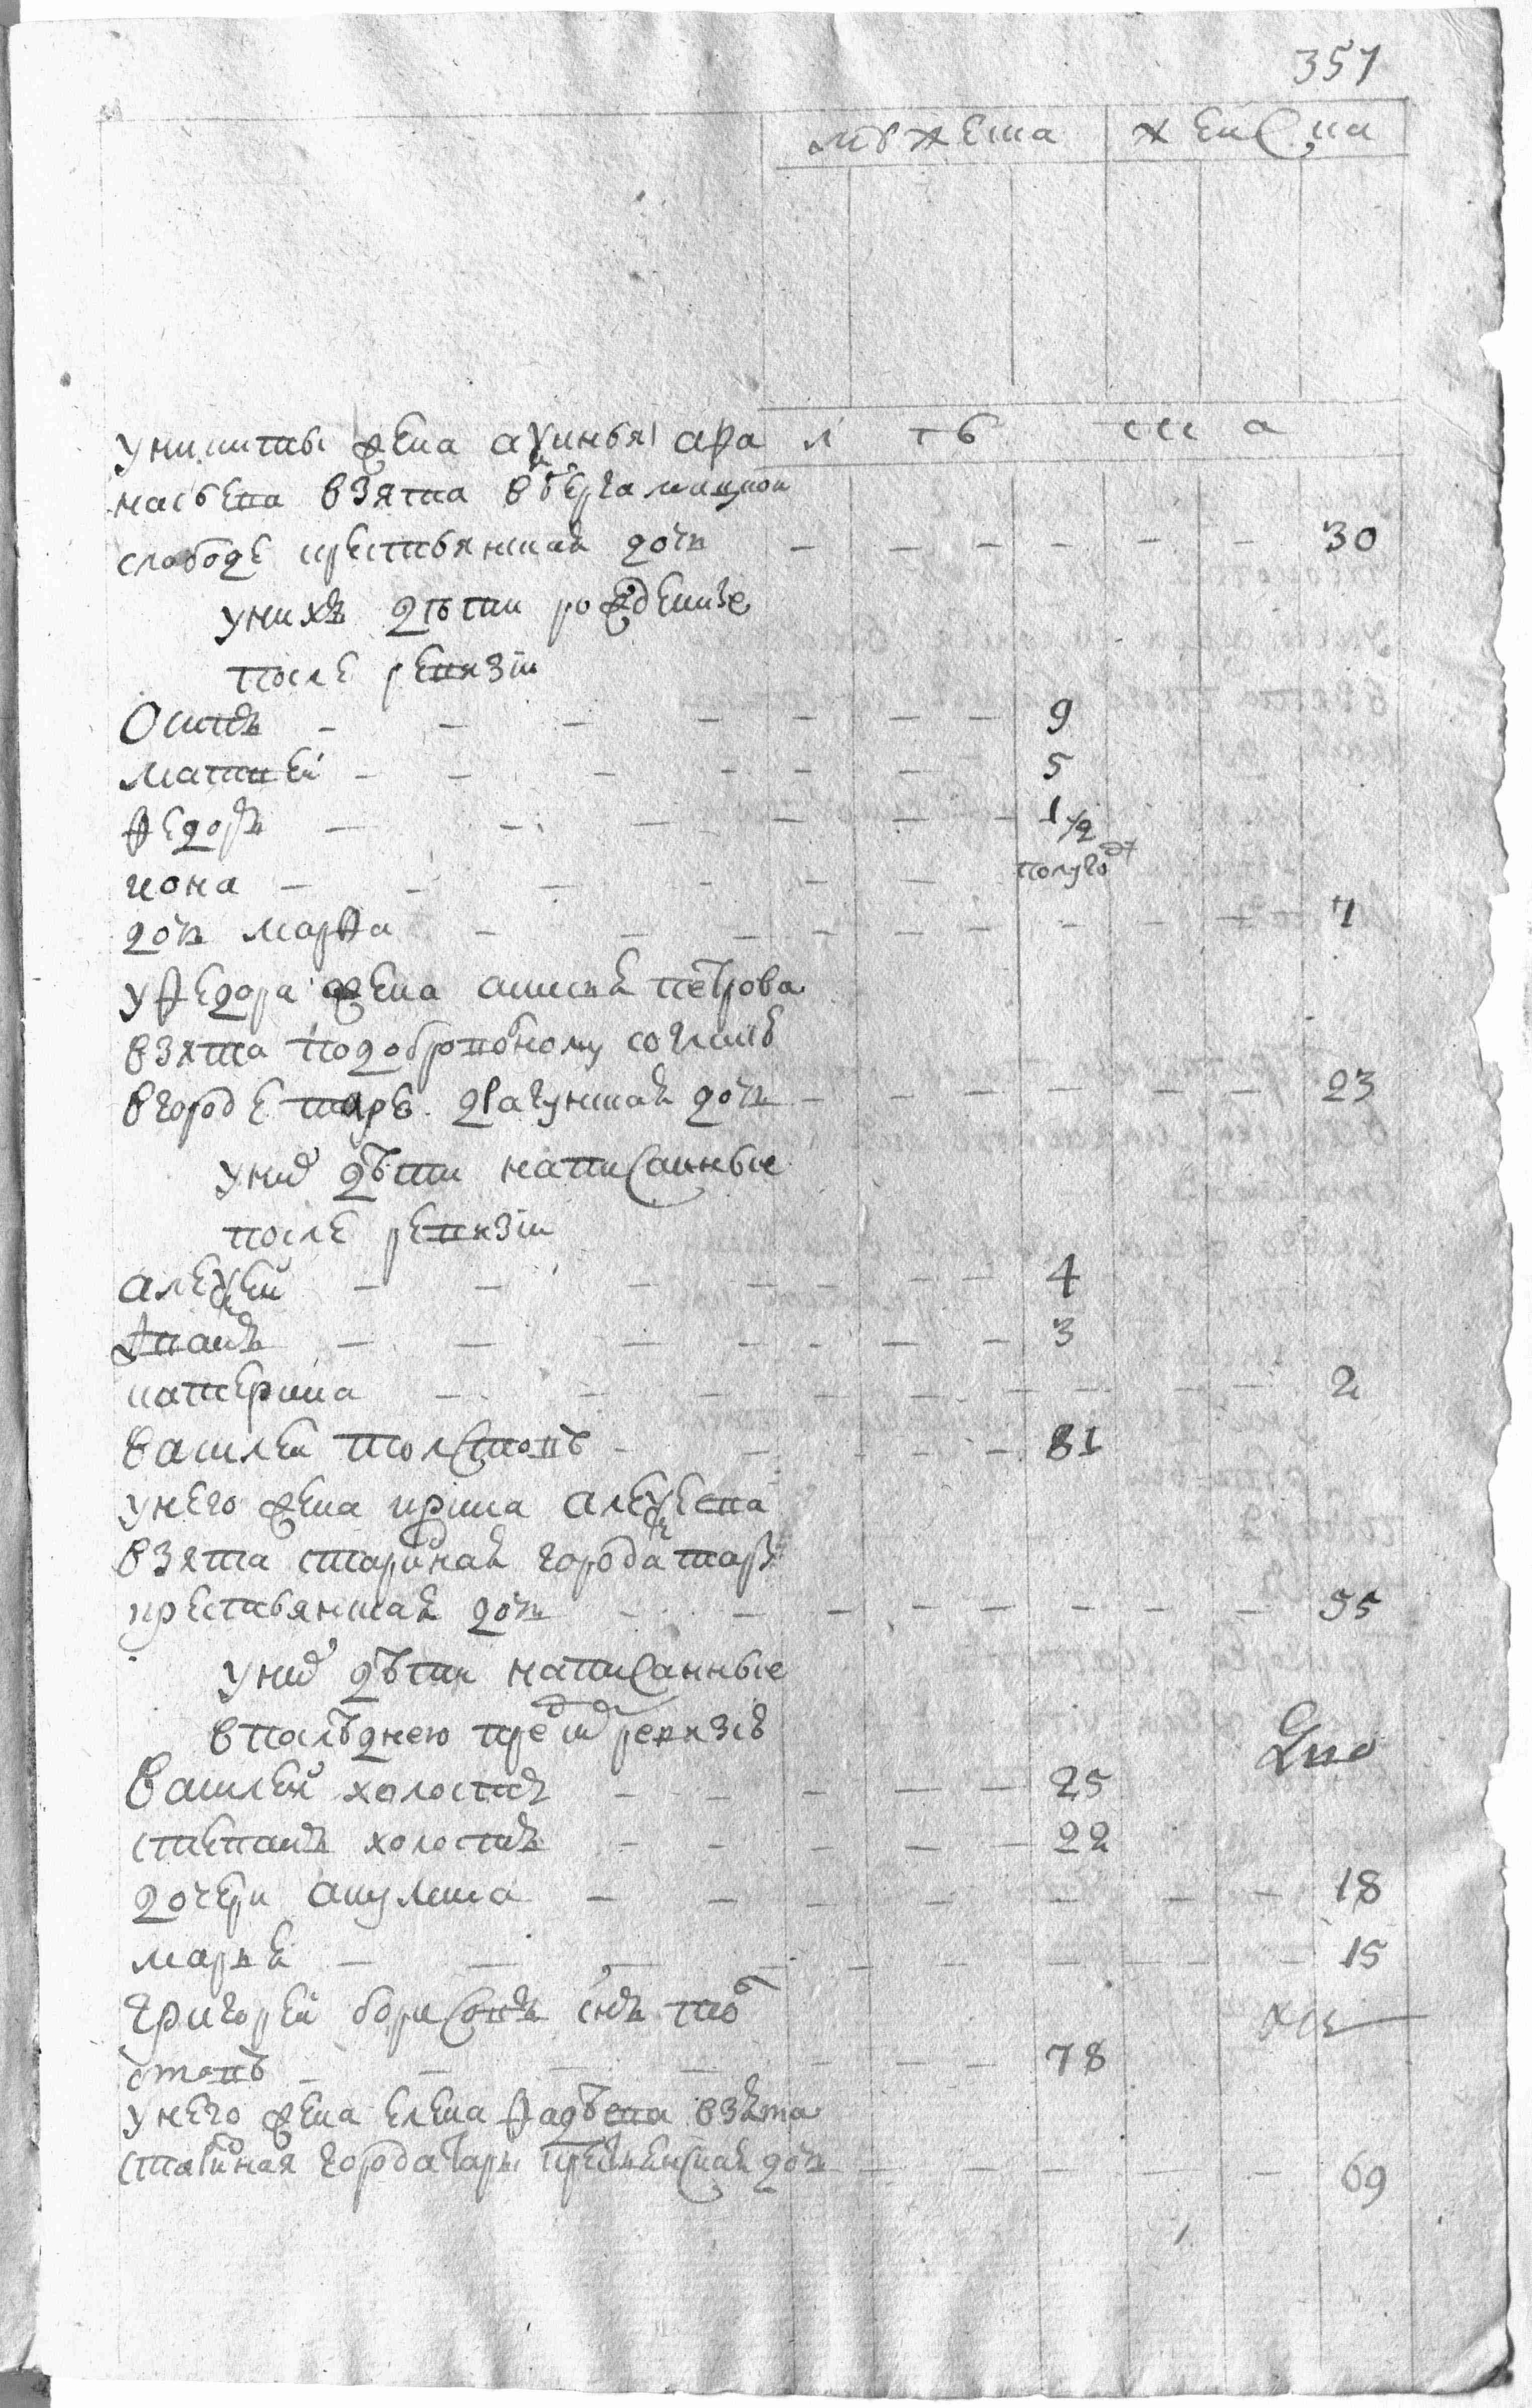 357
мужеска женска
лѣта
у никиты жена аксинья афа
насьева взята в бергамацкои
слободе крестьянская дочь — 30
у нихъ дѣти рожденые
после ревизiи
Осипъ — 9
матвей — 5
федоръ — 1 1/2
иона — полуго д
дочь марфа — 7
у федора жена анисья петрова
взята подоброволному согласiю
в городе таре драгунская дочь — 23
у них дѣти написанные
после ревизiи
алексей — 4
иванъ — 3
катерина — 2
Василеи толстовъ — 81
у него жена ирина алексеева
взята старинная города тары
крестьянская дочь — 55
у них дѣти написанные
в последнею пред сим ревизiю
Василей холостъ — 25
степанъ холостъ — 22
дочери акулина — 18
марья — 15
григорей борисовъ снъ тол
стовъ — 78
у него жена елена фадѣева взята
старинная города тары крестьянская дочь — 69